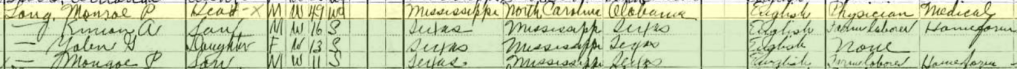 Long, Monroe P Head X M W 49 Wd Mississippi North Caroline Alabama English Physician Medical
— A Son M W 16 S Texas Mississippi Texas English Farm laborer Home farm
— Daughter F W 13 S Texas Mississippi Texas English None
— Monroe P Son M W 11 S Texas Mississippi Texas English Farm laborer Home farm